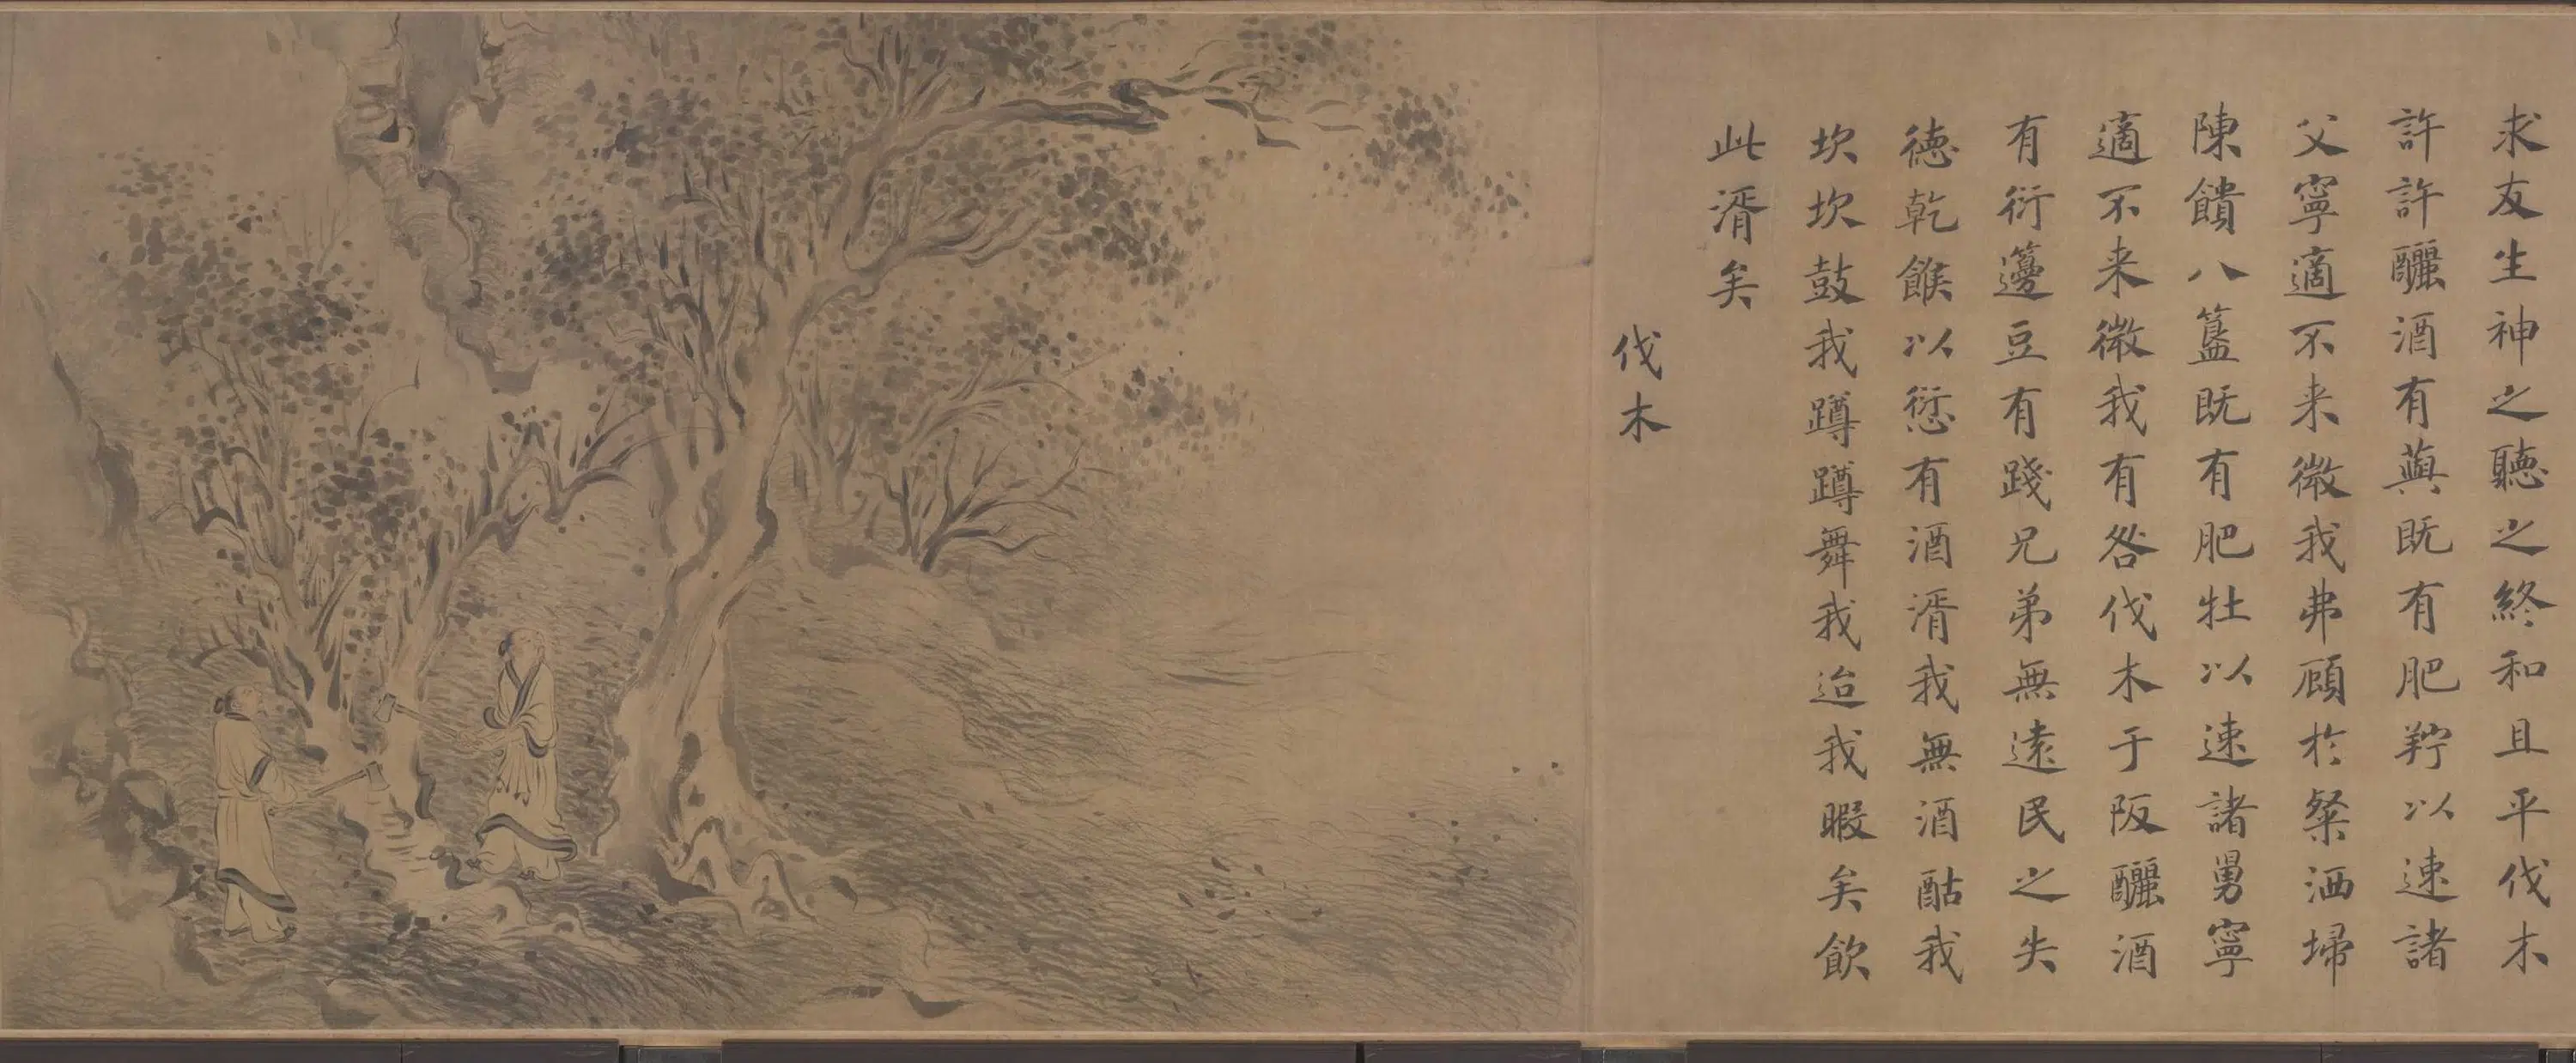 求友生神之聽之終和且平伐木
許許釃酒有藇既有肥羜以速諸
父寧適不来微我弗顧於粲洒埽
陳饋八簋既有肥牡以速諸舅寧
適不来微我有咎伐木于阪釃酒
有衍籩豆有踐兄弟無遠民之失
德乾餱以愆有酒湑我無酒酤我
坎坎鼓我蹲蹲舞我迨我暇矣飲
此湑矣
伐木